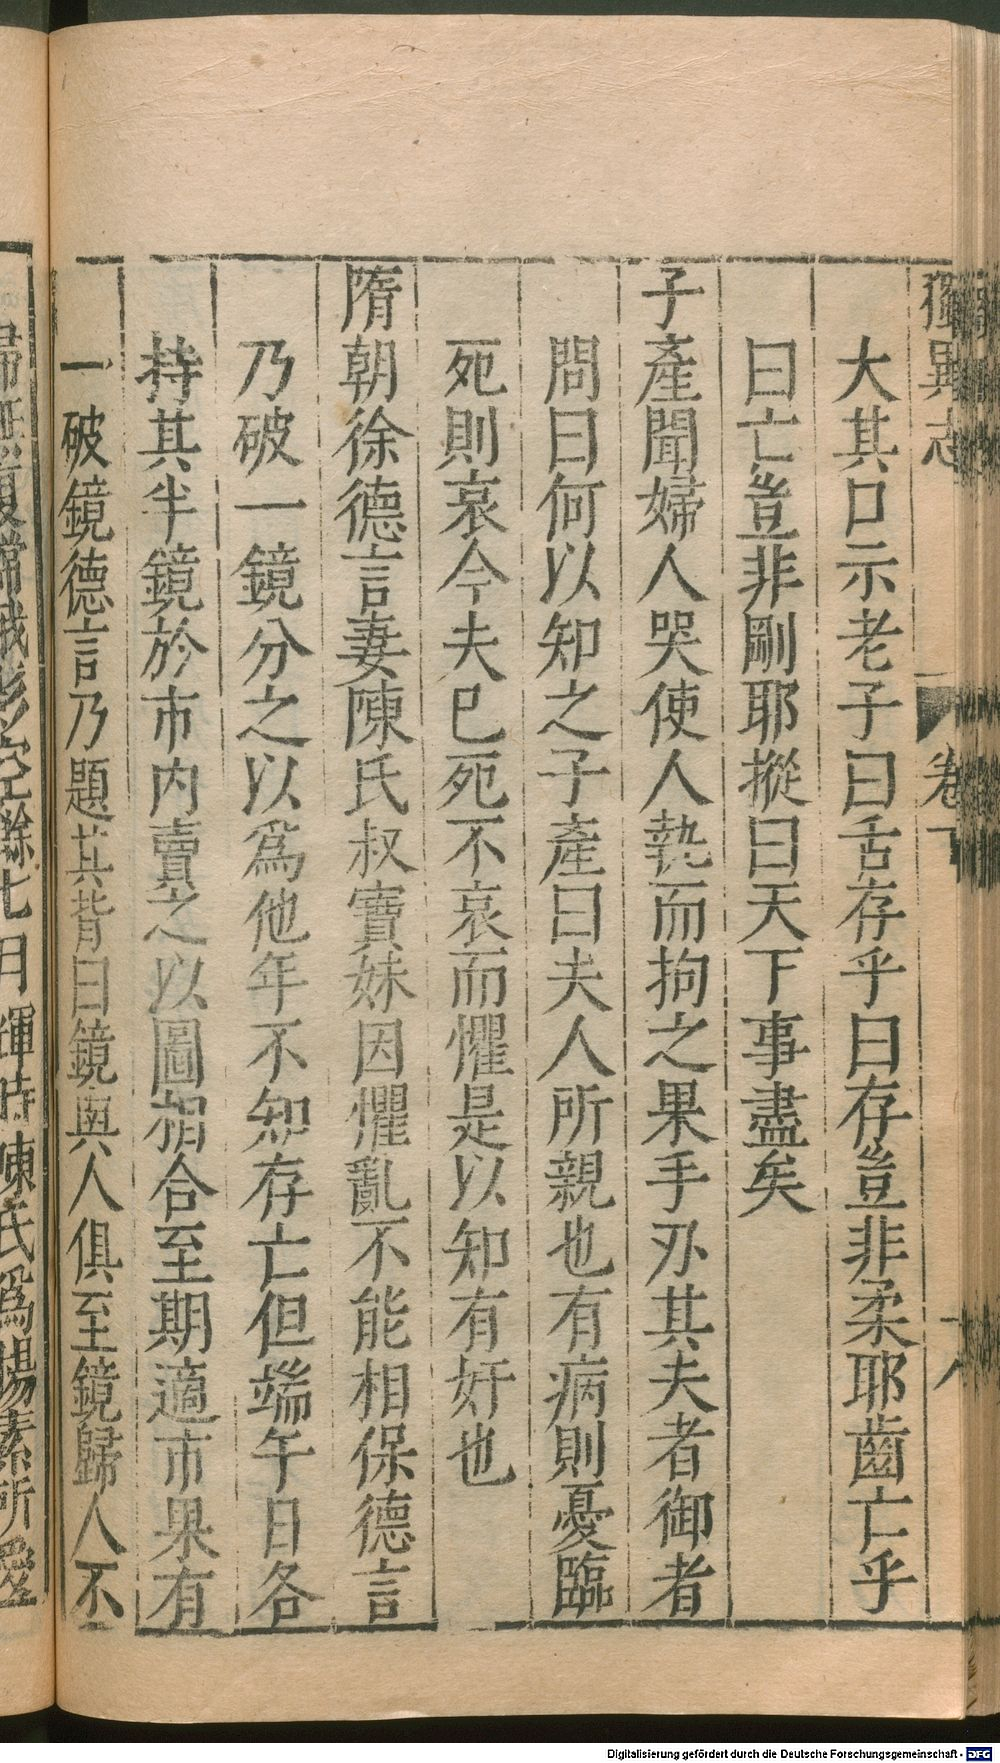 獨異志
卷下
大其口示老子曰舌存乎曰存豈非柔耶齒亡乎
曰亡豈非剛耶摐曰天下事盡矣
子產聞婦人哭使人執而拘之果手刃其夫者御者
問曰何以知之子產曰夫人所親也有病則憂臨
死則哀今夫已死不哀而懼是以知有奸也
隋朝徐德言妻陳氏叔寶妹因懼亂不能相保德言
乃破一鏡分之以為他年不知存亡但端午日各
持其半鏡於市內賣之以圖相合至期適市果有
一破鏡德言乃題其背曰鏡與人俱至鏡歸人不
歸無復常娥影空餘七月輝時陳氏為楊素所愛
Digitalisierung gefördert durch die Deutsche Forschungsgemeinschaft - DFG